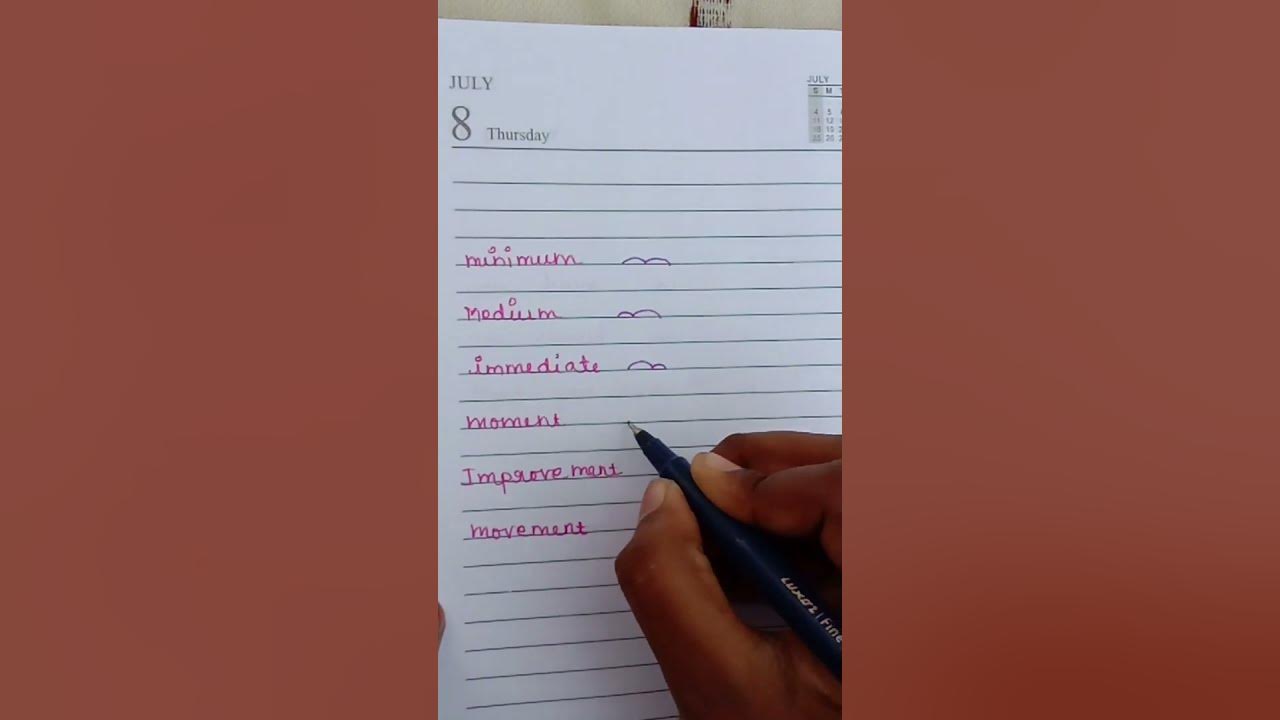 JULY
8 Thursday
JULY
S M
4 5
11 12
18 19
25 26
minimum
Medium
immediate
moment
Improvement
movement
LUXOR | Fine